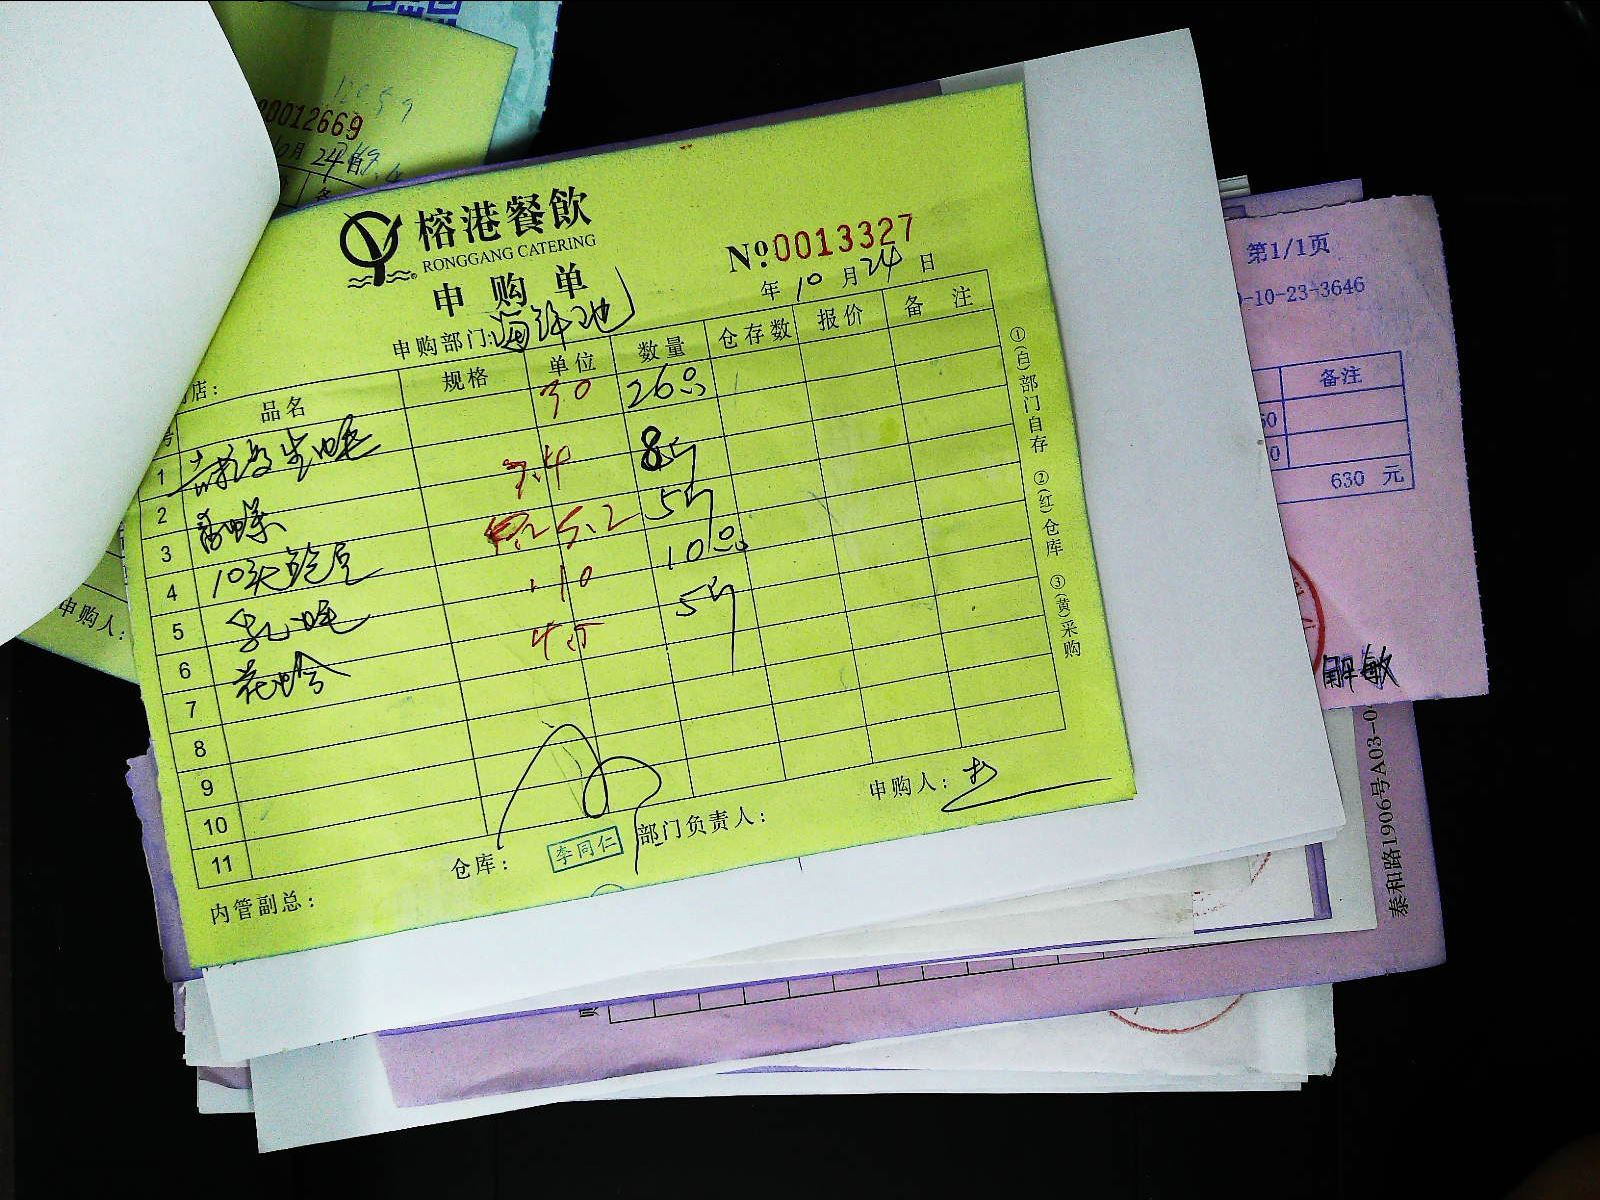 0012669
榕港餐飲
RONGGANG CATERING
申购单
№0013327
年10月24日
申购部门:海鲜池
店:
品名 规格 单位 数量 仓存数 报价 备注
30 26只
1
2 7.4 8斤
3 5.2 5斤
4 10头鲍 110 10只
5 4.5 5斤
6 花蛤
7
8
9
10
11
仓库: 李同仁 部门负责人: 申购人:
内管副总:
①(白)部门自存 ②(红)仓库 ③(黄)采购
申购人:
第1/1页
-10-23-3646
备注
630 元
解敏
泰和路1906号A03-0